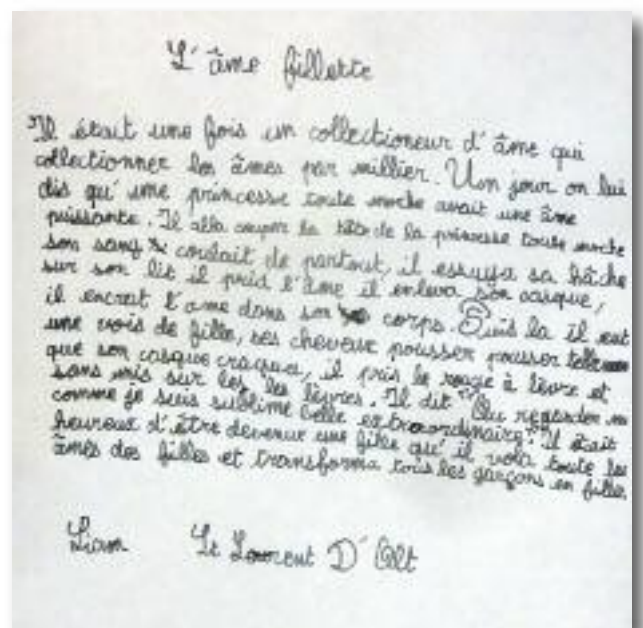 L'âme fillette
Il était une fois un collectioneur d'âme qui
collectionner les âmes par millier. Un jour on lui
dis qu'une princesse toute moche avait une âme
puissante. Il alla couper la tête de la princesse toute moche
son sang coulait de partout, il essuya sa hâche
sur son lit il prid l'âme il enleva son casque,
il encrat l'ame dans son corps. Puis la il eut
une vois de fille, ses cheveux pousser pousser
que son casque craqua, il pris le rouge à lèvre et
sans mis sur les les lèvres. Il dit "Ou regarder
comme je suis sublime belle extraordinaire". Il était
heureux d'être devenue une fille qu'il vola toute les
âmes des filles et transforma tous les garçons en filles
Liam Le Laurent D'Olt